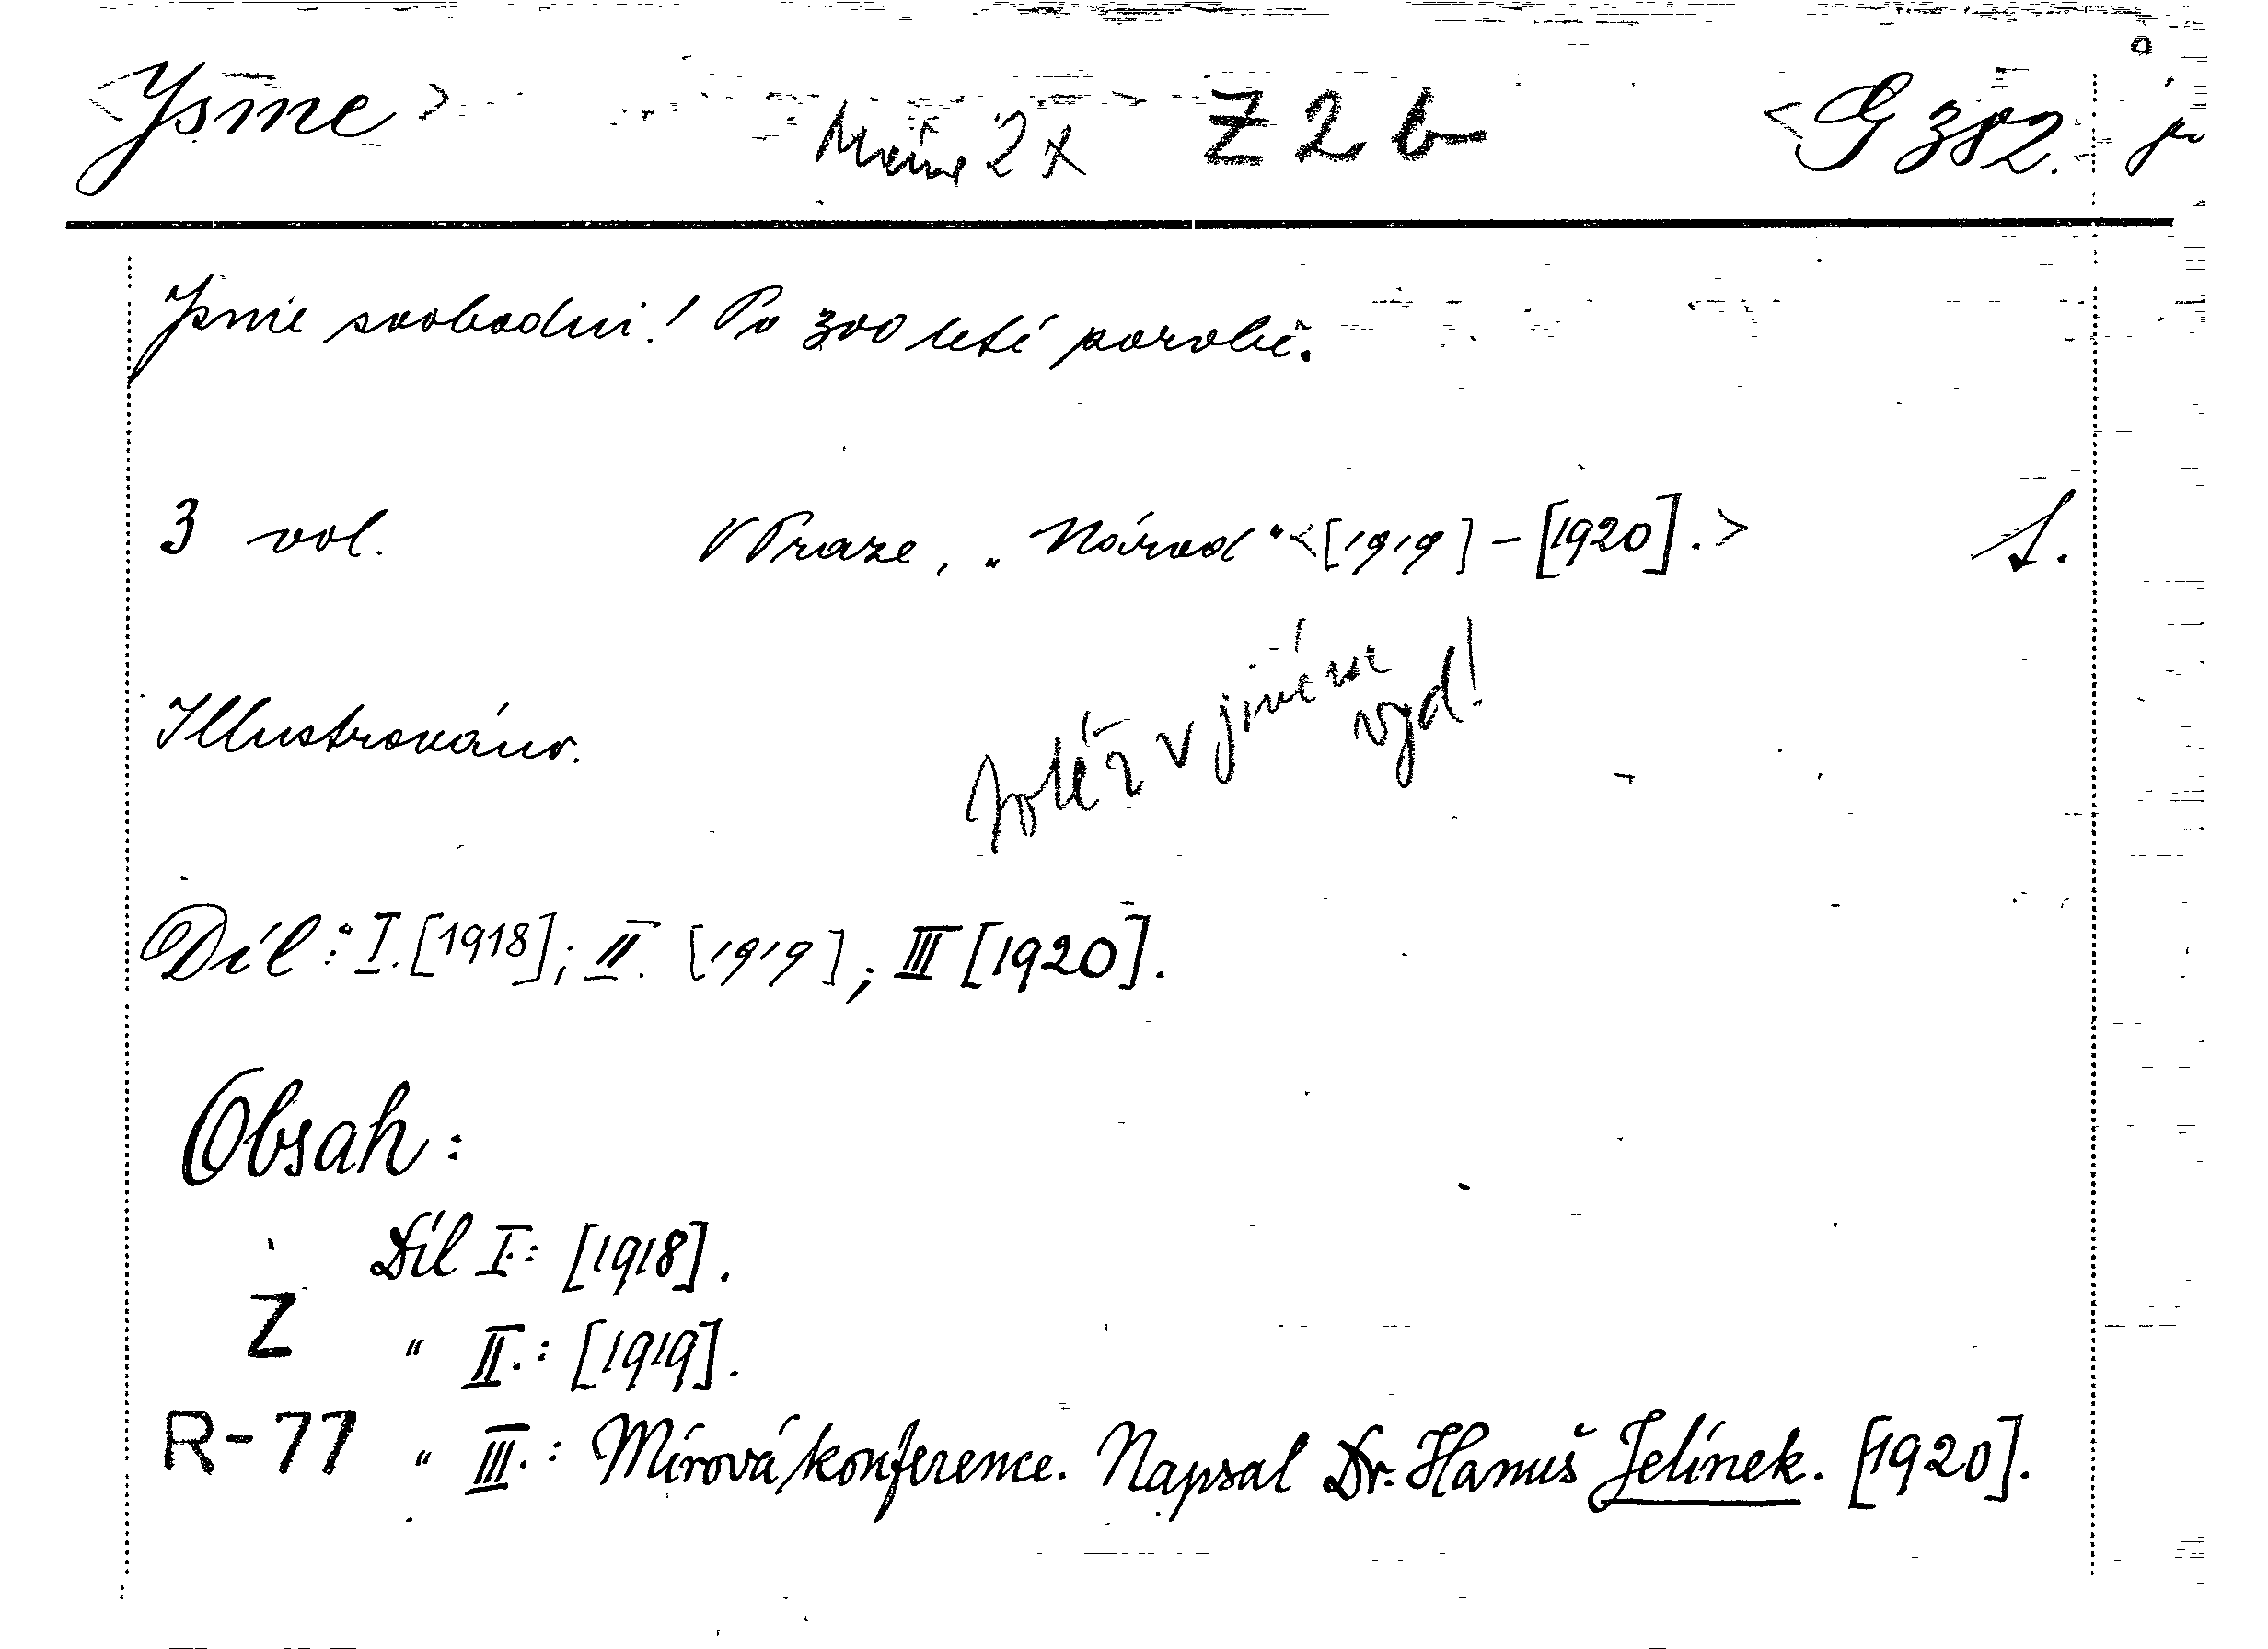 <Jsme> Máme 2x Z 2 b <G 382.
Jsme svobodni! Po 300 leté porobě.
3 vol. V Praze, „Národ“ <[1919] – [1920].> 1.
Illustrováno.
Totéž v jiném
vyd!
Díl: I. [1918]; II. [1919]; III [1920].
Obsah:
Díl I: [1918].
Z
" II.: [1919].
R-77 " III.: Mírová konference. Napsal Dr. Hanuš Jelínek. [1920].